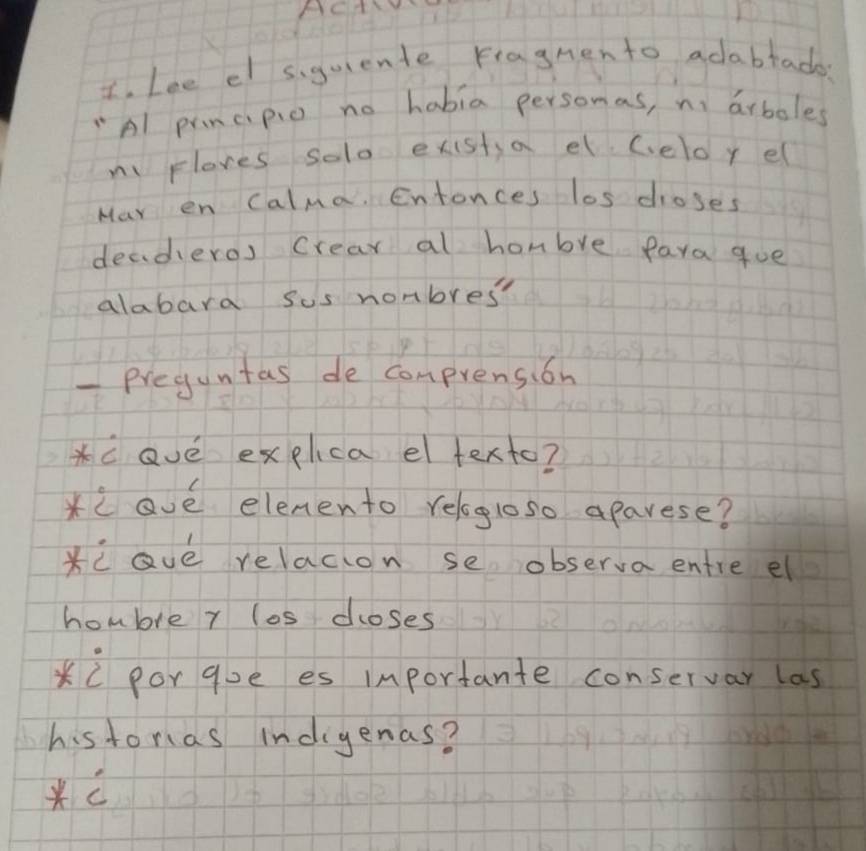 1. Lee el siguiente Fragmento adabtado:
"Al principio no había personas, ni árboles
ni Flores solo existia el Cielo y el
Mar en Calma. Entonces los dioses
decidieros Crear al hombre Para que
alabara sus nombres"
- Preguntas de comprensión
*¿ Qué explica el texto?
*¿ Qué elemento religioso aparese?
*¿ Qué relacion se observa entre el
hombre y los dioses
*¿ Por que es importante conservar las
historias indigenas?
*¿